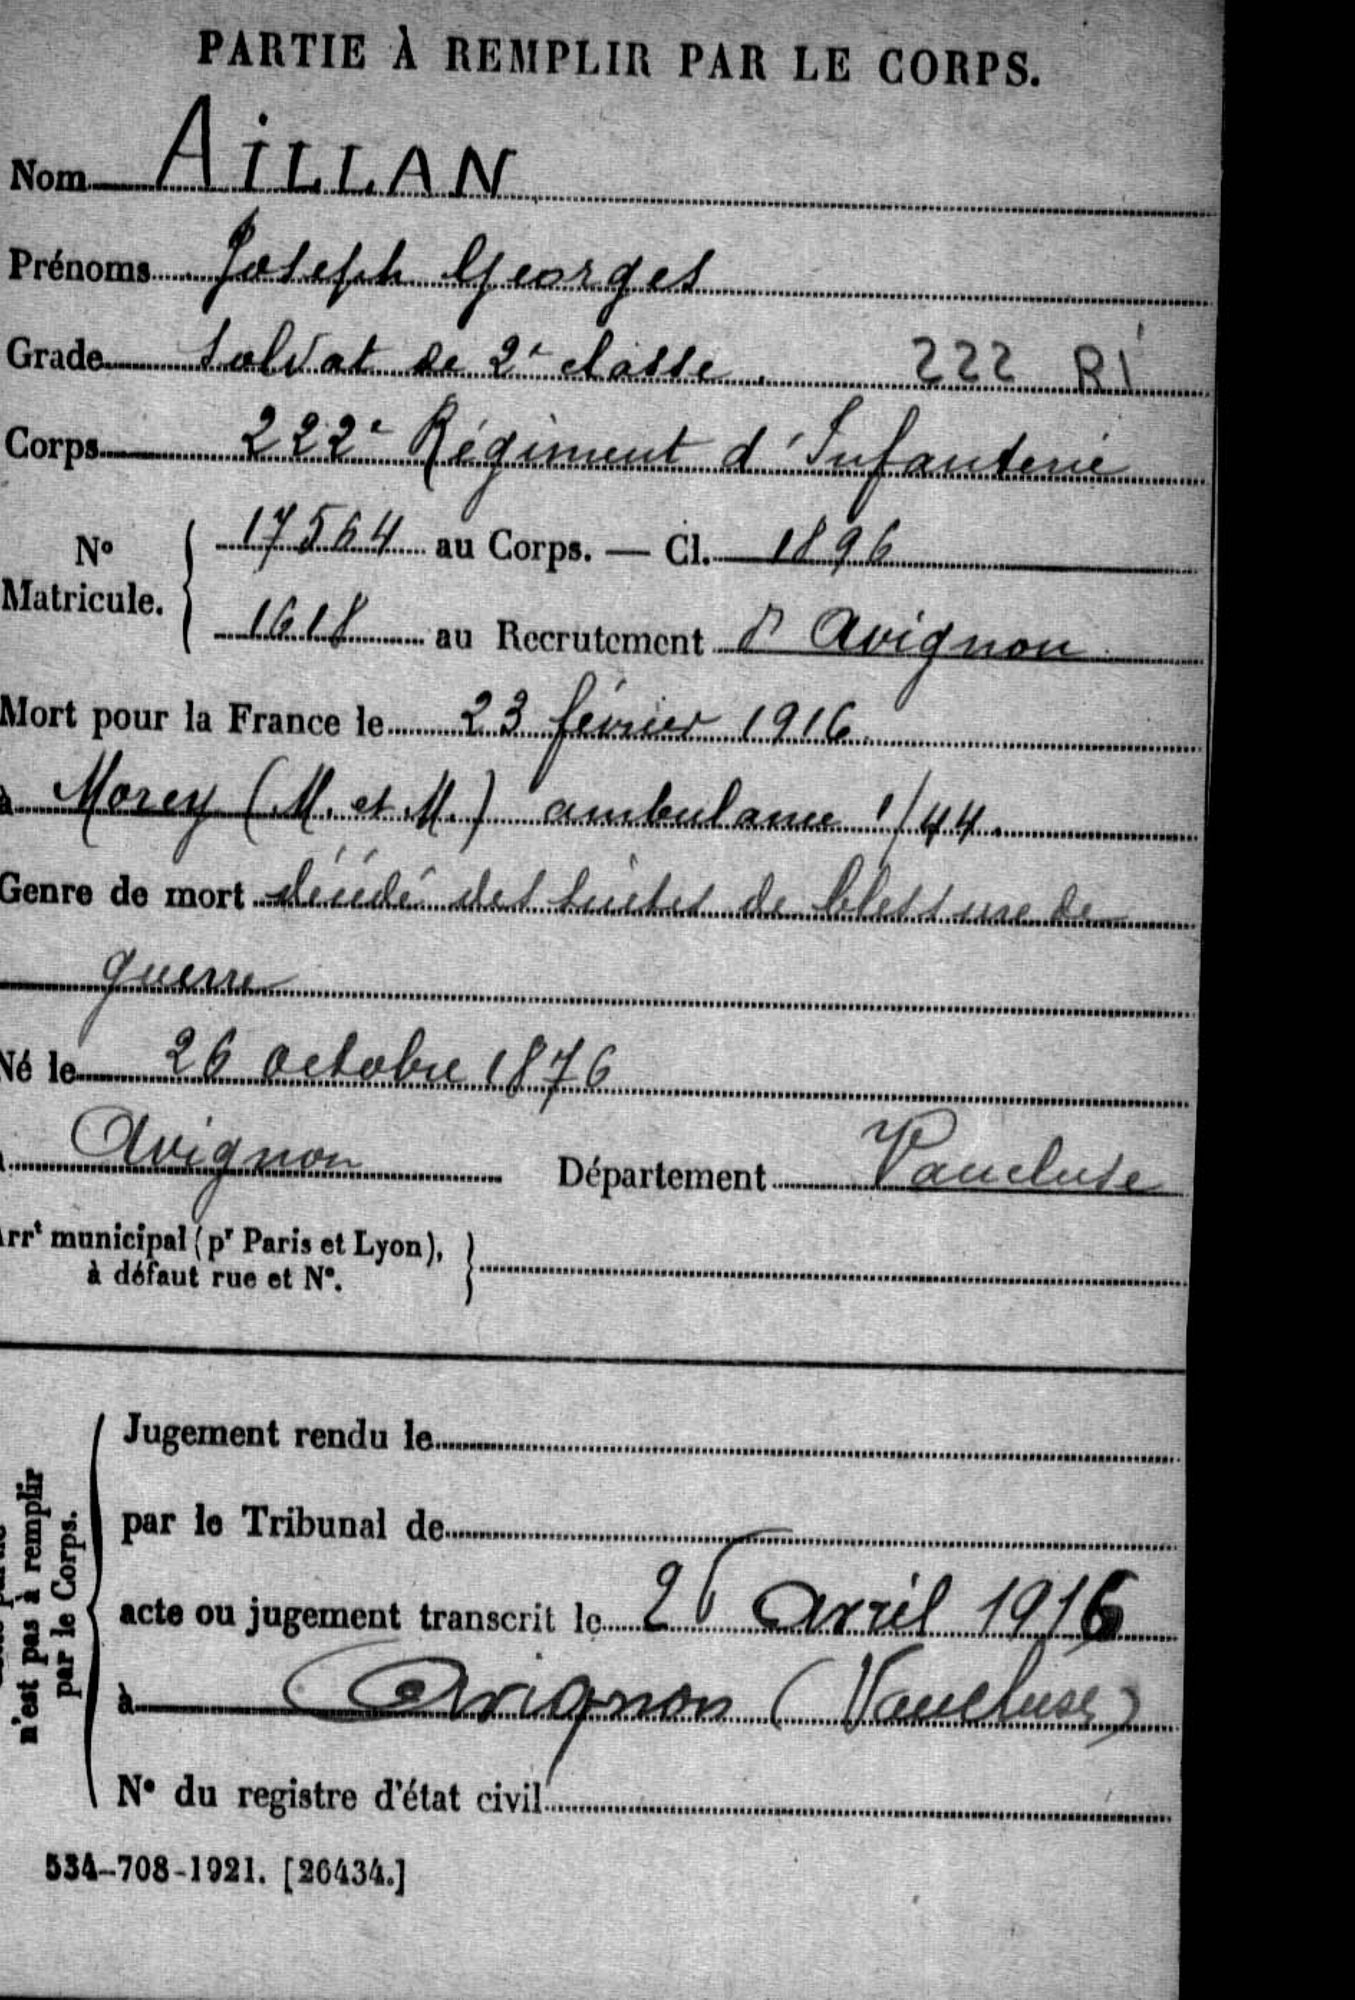 PARTIE À REMPLIR PAR LE CORPS.
Nom AiLLAN
Prénoms Joseph Georges
Grade Soldat de 2e classe. 222 RI
Corps 222e Régiment d'Infanterie
No Matricule. { 17564 au Corps. — Cl. 1896
1618 au Recrutement d'Avignon
Mort pour la France le 23 février 1916
à Morey (M. et M.) ambulance 1/44.
Genre de mort décédé des suites de blessure de
guerre
Né le 26 octobre 1876
à Avignon Département Vaucluse
Arrt municipal (pr Paris et Lyon),
à défaut rue et No. }
n'est pas à remplir
par le Corps.
Jugement rendu le
par le Tribunal de
acte ou jugement transcrit le 26 avril 1916
à Avignon (Vaucluse)
No du registre d'état civil
534-708-1921. [26434.]